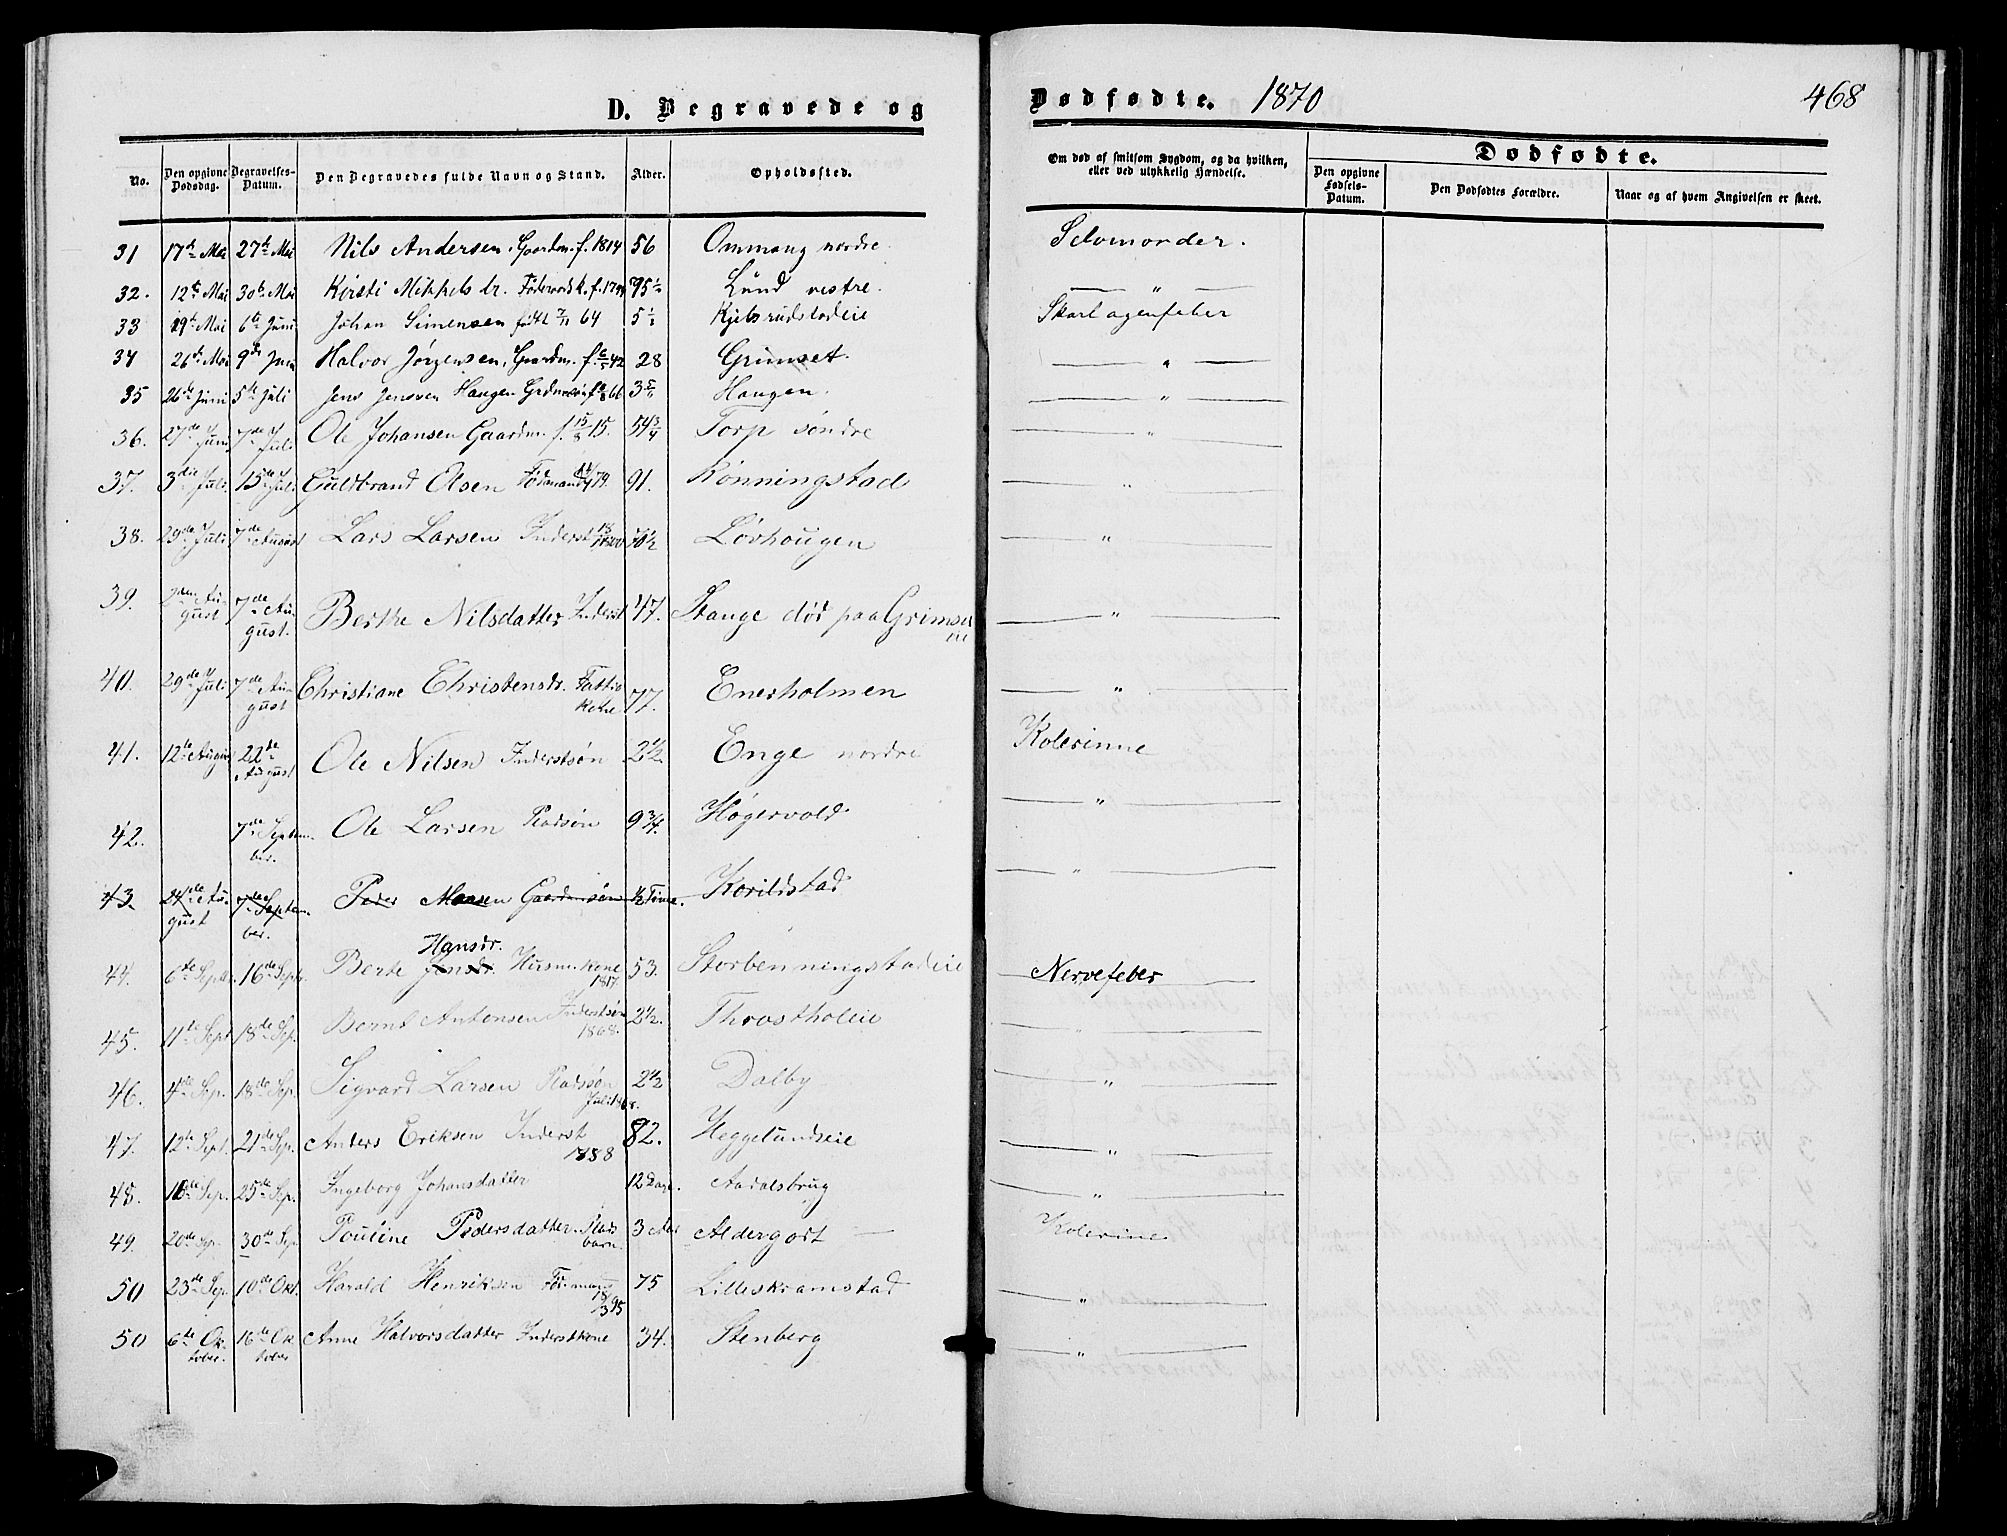 D. Begravede og Dødfødte. 1870 468
No. Den opgivne Dødsdag. Begravelses-Datum. Den Begravedes fulde Navn og Stand. Alder. Opholdssted. Om død af smitsom Sygdom, og da hvilken, eller ved ulykkelig Hændelse. Dødfødte.
Den opgivne Fødsels-Datum. Den Dødfødtes Forældre. Naar og af hvem Angivelsen er skeet.
31 17de Mai 27de Mai Nils Andersen, Gaardm. f. 1814 56 Ommang nordre. Selvmorder.
32. 12te Mai 30te Mai Kirsti Mikkelsdr. 95½ Lund vestre. — " —
33 19de Mai 6te Juni Johan Simensen født 64 5½ Kjelsrudstadeie Skarlagenfeber
34 26de Mai 9de Juni Halvor Jørgensen, Gaardm. f. 6/5 42 28 Grimset. — " —
35 26de Juni 5te Juli Jens Jensen Haugen 66 Haugen. — " —
36. 27de Juni 7de Juli Ole Johansen Gaardm. f. 15/8 15. 54¾ Torp søndre — " —
37. 3die Juli 15de Juli Guldbrand Olsen 79. 91. Rønningstad — " —
38. 29de Juli 7de August Lars Larsen Inderst 1800 70½ Løvhougen — " —
39. 2den August 7de August. Berthe Nilsdatter Inderst 47. Stange død paa Grimset — " —
40. 29de Juli 7de August Christiane Christensdr. 77. Enerholmen — " —
41. 12te August 22de August Ole Nilsen Inderstsøn 2½. Enge nordre Kolerinne
42. 7de September. Ole Larsen Pladsøn 9¾. Høgervold — " —
43. 24de August 7de September. Peder Gaardmsøn ½ Time. Korildstad — " —
44. 6te Septbr. 16de Septbr. Berte Jensdr. Hansdr. Husm. kone 1817. 53. Storbenningstadeie Nervefeber
45. 11te Sept. 18de Sep. Bernt Antonsen Inderstsøn 1868. 2½. Throstholeie — " —
46. 4de Sep. 18de Sep. Sigvard Larsen Pladssøn Juli 1868. 2½ Dalby — " —
47. 12te Sept. 21de Sep. Anders Eriksen Inderst 1788 82. Heggelundseie — " —
48. 25de Sep. Ingeborg Johansdatter 12 Dage. Aadalsbrug — " —
49. 20de Sep. 30de Sep. Pouline Pedersdatter. Plads barn. 3 Aldergodt — Kolerine
50 23de Sep. 10de Okt. Harald Henriksen 95 75 Lilleskramstad — " —
50 6te Oktober. 16de Oktober Anne Halvorsdatter Inderstkone 34. Stenberg — " —